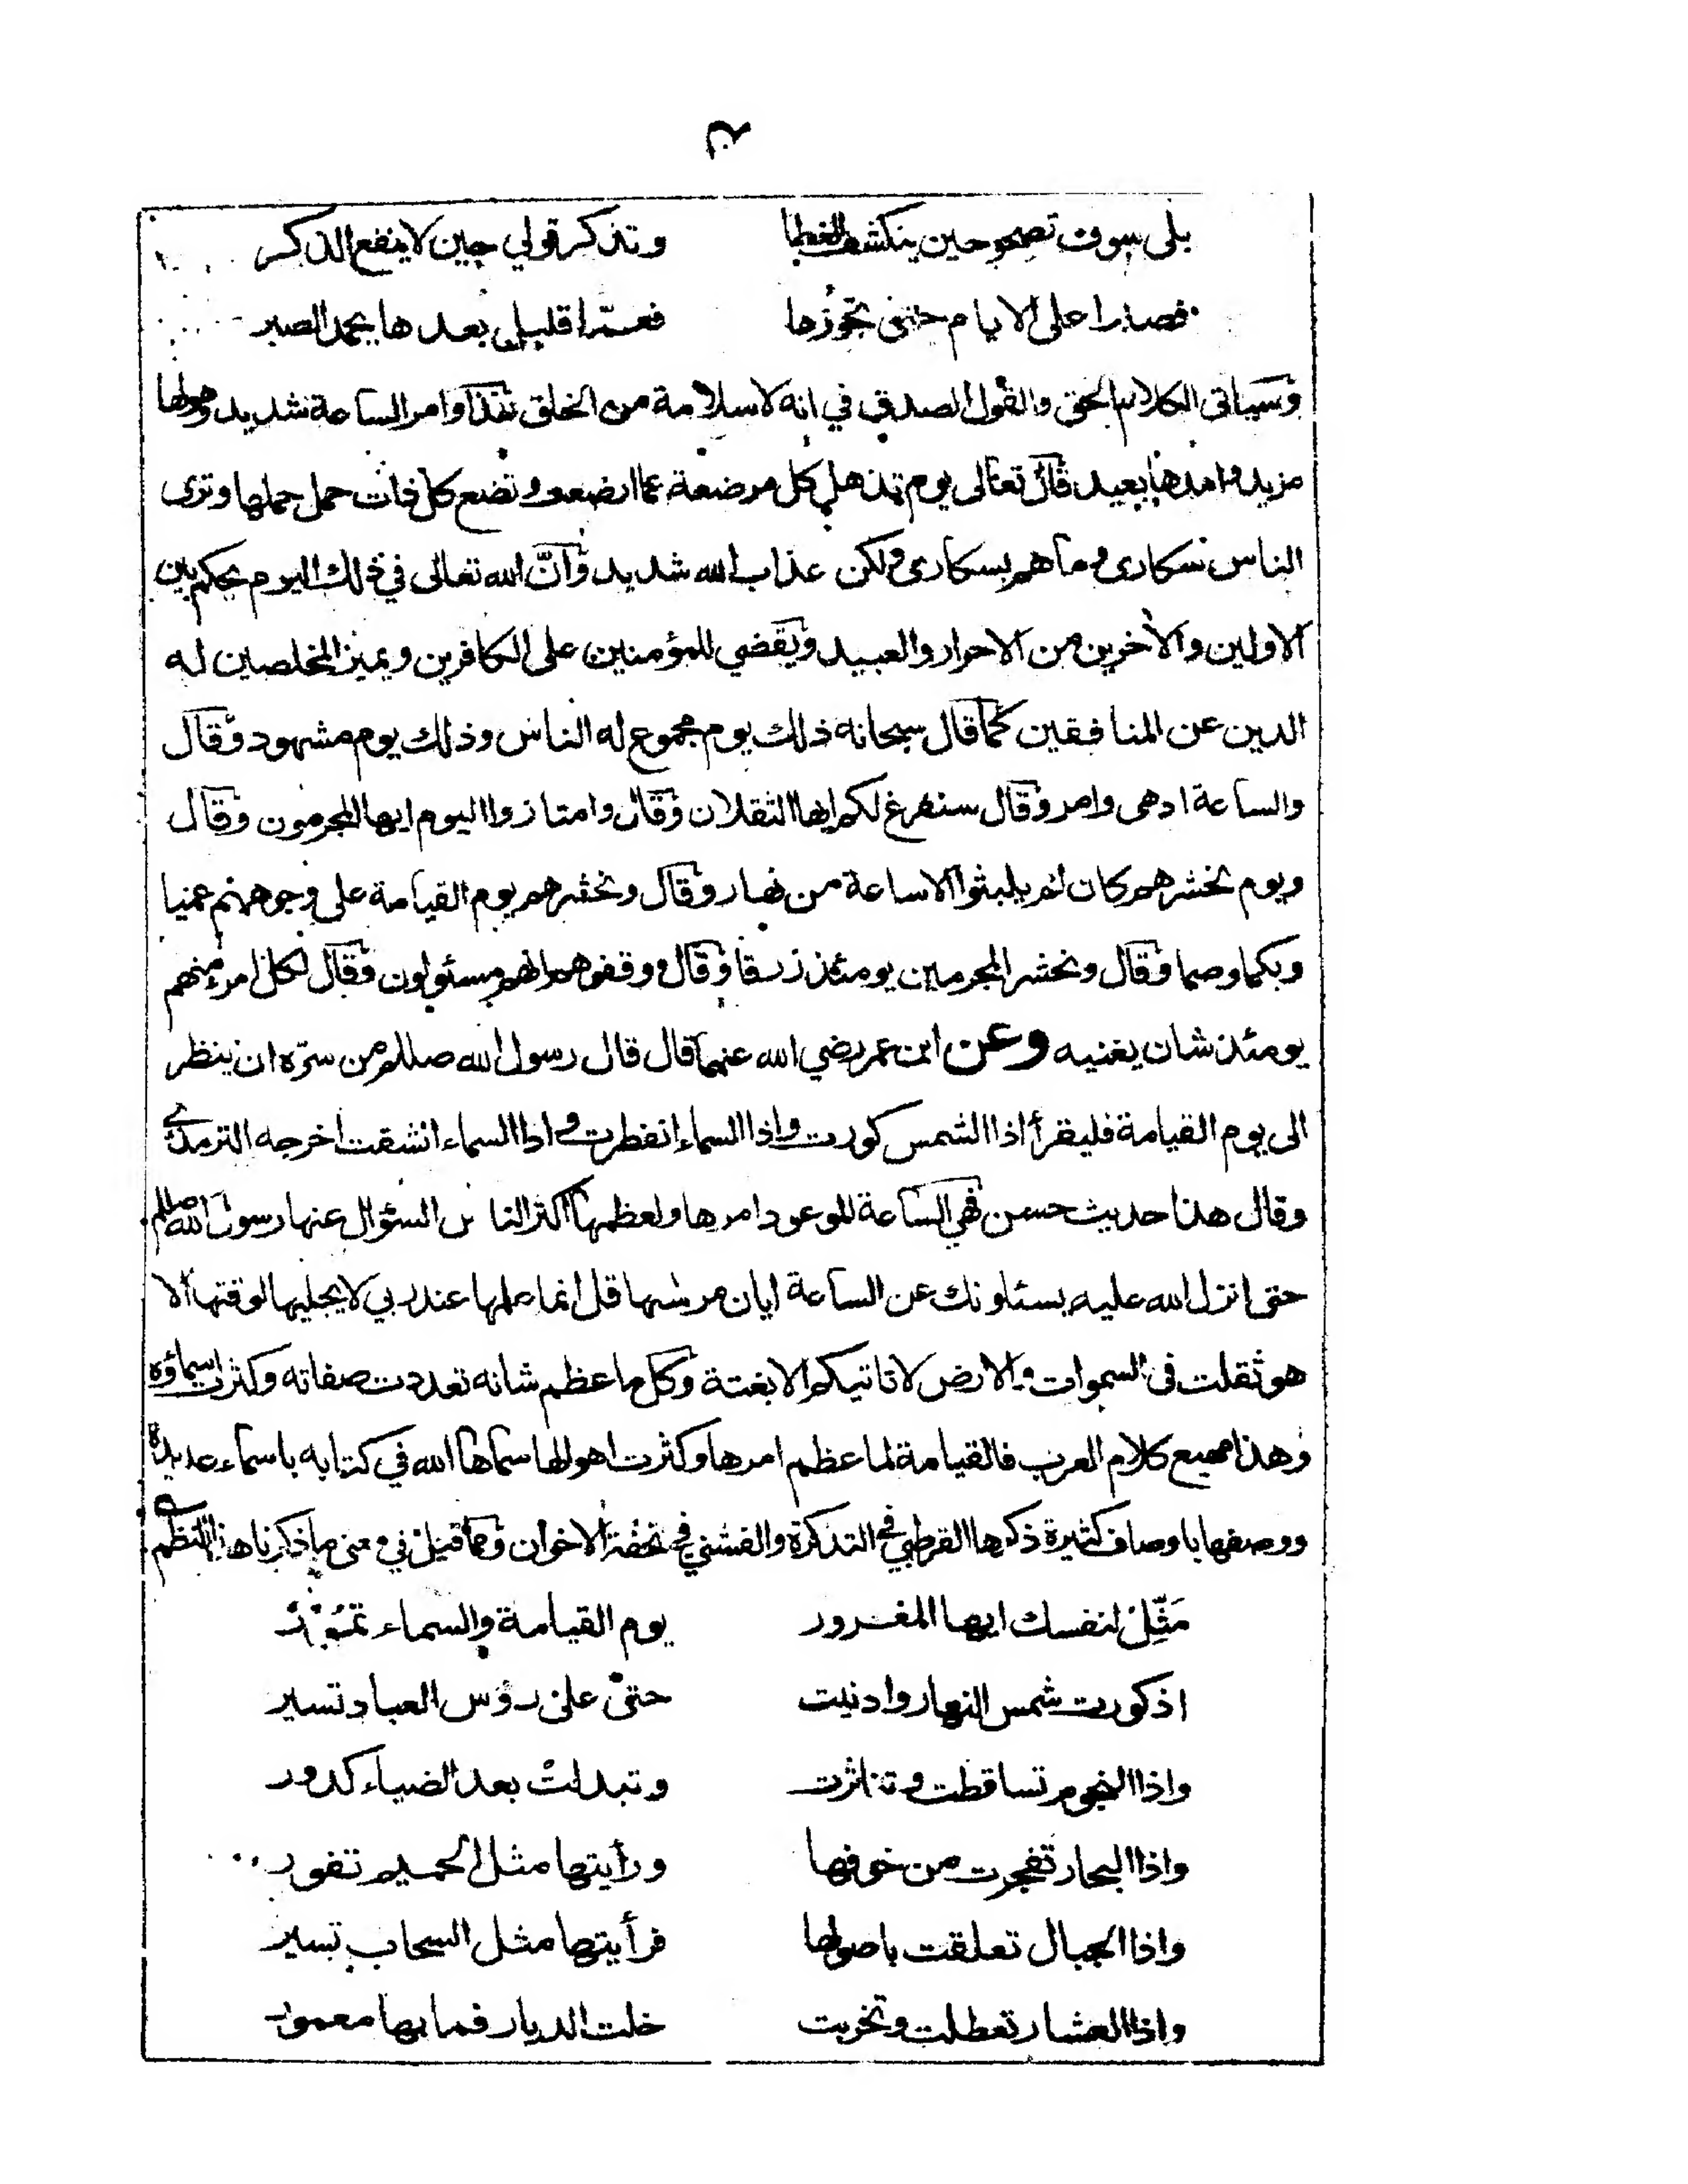 بلى سوف تصحو حين ينكشف الغطا وتذكر قولي حين لا ينفع الذكر
فصبرا على الايام حتى تجوزها فعمّا قليل بعدها يحمد الصبر
وسياتى الكلام الحق والقول الصدق في انه لا سلامة من الخلق هذا وامر الساعة شديد وهولها
مزيد وامدها بعيد قال تعالى يوم تذهل كل مرضعة عما ارضعت وتضع كل ذات حمل حملها وترى
الناس سكارى وما هم بسكارى ولكن عذاب الله شديد وانّ الله تعالى في ذلك اليوم يحكم بين
الاولين والآخرين من الاحرار والعبيد ويقضي للمؤمنين على الكافرين ويميز المخلصين له
الدين عن المنافقين كما قال سبحانه ذلك يوم مجموع له الناس وذلك يوم مشهود وقال
والساعة ادهى وامر وقال سنفرغ لكم ايها الثقلان وقال وامتازوا اليوم ايها المجرمون وقال
ويوم نحشرهم كان لم يلبثوا الا ساعة من نهار وقال ونحشرهم يوم القيامة على وجوههم عميا
وبكما وصما وقال ونحشر المجرمين يومئذ زرقا وقال وقفوهم انهم مسئولون وقال لكل امرء منهم
يومئذ شان يغنيه وعن ابن عمر رضي الله عنهما قال قال رسول الله صللم من سرّه ان ينظر
الى يوم القيامة فليقرأ اذا الشمس كورت واذا السماء انفطرت واذا السماء انشقت اخرجه الترمذي
وقال هذا حديث حسن فهي الساعة الموعود امرها ولعظمها اكثر الناس السؤال عنها رسول الله صللم
حتى انزل الله عليه يسئلونك عن الساعة ايان مرسها قل انما علمها عند ربي لا يجليها لوقتها الا
هو ثقلت فى السموات والارض لا تاتيكم الا بغتة وكل ما عظم شانه تعددت صفاته وكثرت اسماؤه
وهذا مهيع كلام العرب فالقيامة لما عظم امرها وكثرت اهوالها سماها الله في كتابه باسماء عديدة
ووصفها باوصاف كثيرة ذكرها القرطبي في التذكرة والفشني في تحفة الاخوان ومما قيل في معنى ما ذكرناه هذا النظم
مَثِّلْ لنفسك ايها المغرور يوم القيامة والسماء تمُورُ
اذ كورت شمس النهار وادنيت حتى على رؤس العباد تسير
واذا النجوم تساقطت وتناثرت وتبدلت بعد الضياء كدور
واذا البحار تفجرت من خوفها ورأيتها مثل الحميم تفور
واذا الجبال تعلقت باصولها فرأيتها مثل السحاب تسير
واذا العشار تعطلت وتخربت خلت الديار فما بها معمور